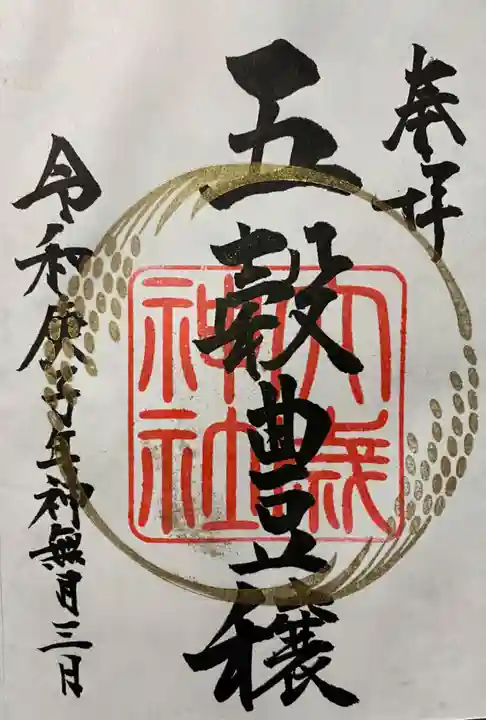 奉拝
五穀豊穣
大歳
神社
令和庚子年神無月三日